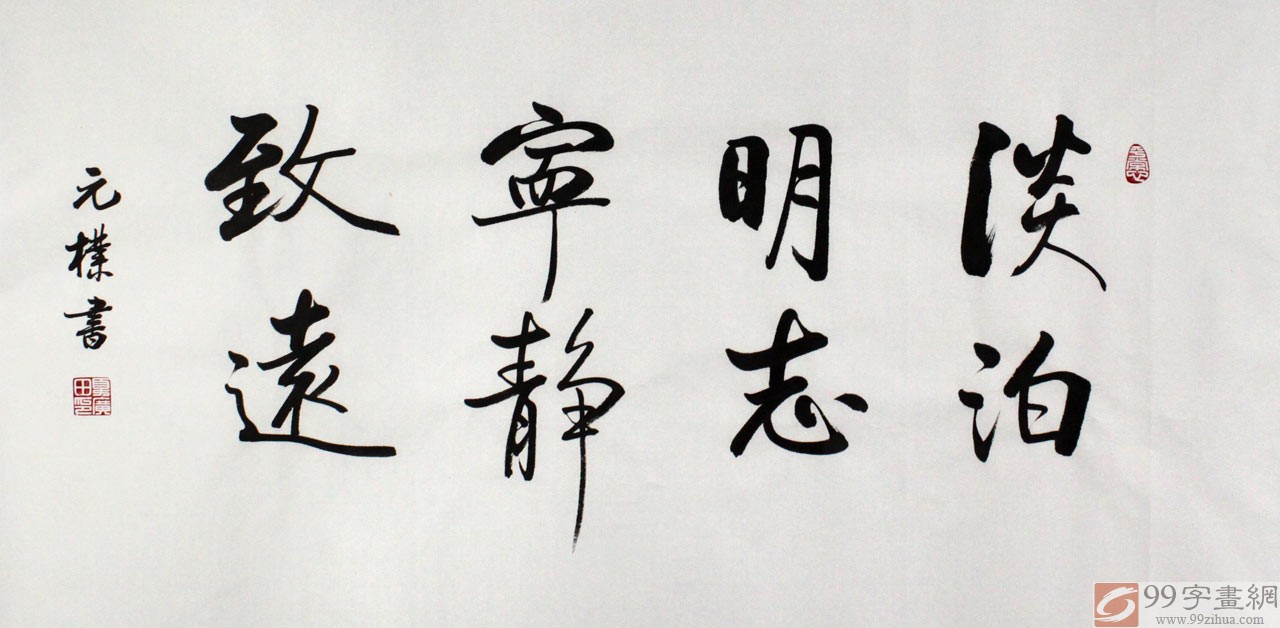 淡泊
明志
寧靜
致遠
元樸書
99字畫網
www.99zihua.com